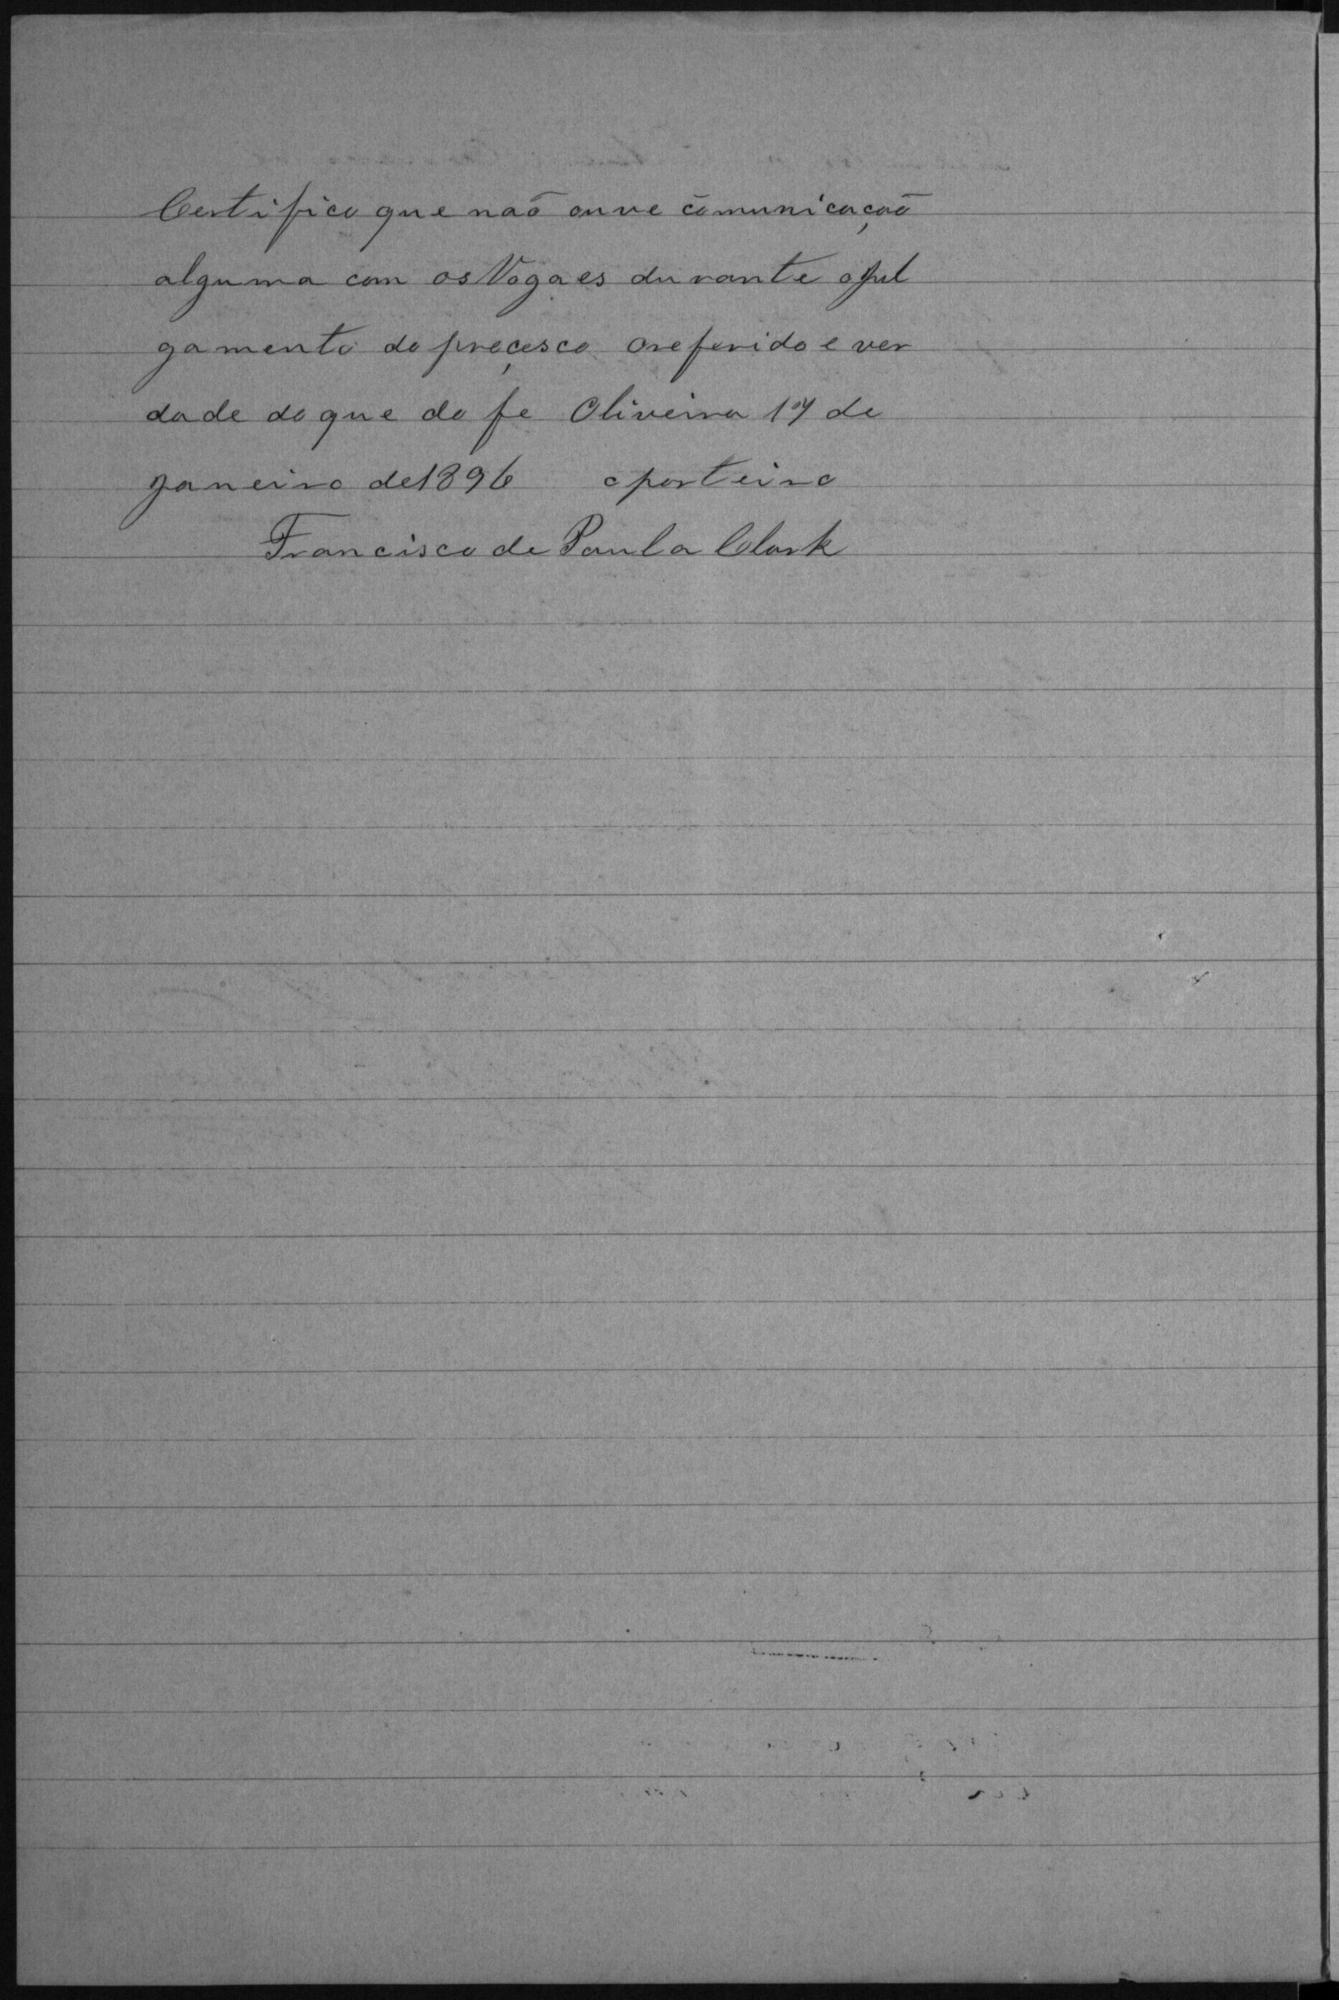 Certifico que naõ ouve cōmunicaçaõ
alguma com os Vogaes durante o Jul
gamento do proçesco o referido e ver
dade do que do fe Oliveira 17 de
Janeiro de 1896 o porteiro
Francisco de Paula Clark